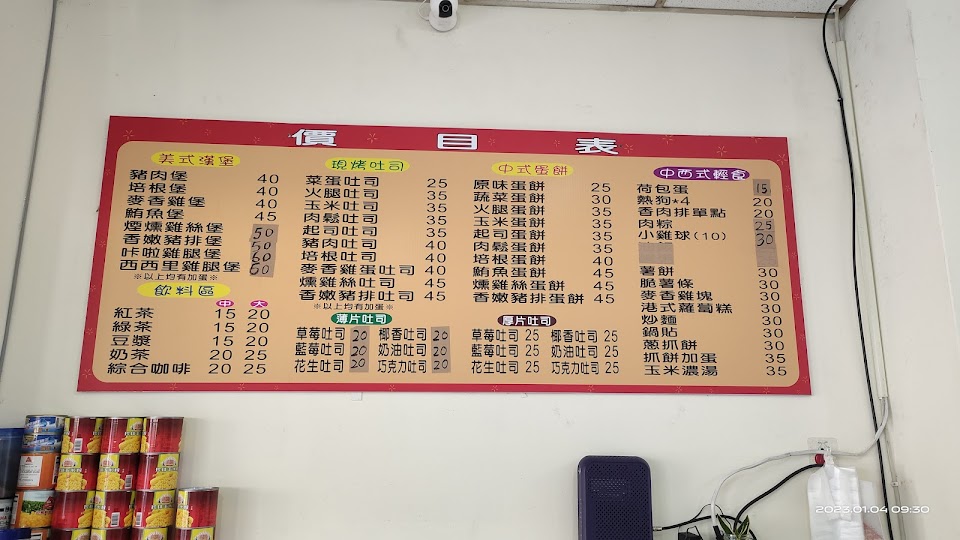 價目表
美式漢堡
豬肉堡 40
培根堡 40
麥香雞堡 40
鮪魚堡 45
煙燻雞絲堡 50
香嫩豬排堡 50
咔啦雞腿堡 60
西西里雞腿堡 60
※以上均有加蛋※
飲料區
中 大
紅茶 15 20
綠茶 15 20
豆漿 15 20
奶茶 20 25
綜合咖啡 20 25
現烤吐司
菜蛋吐司 25
火腿吐司 35
玉米吐司 35
肉鬆吐司 35
起司吐司 35
豬肉吐司 40
培根吐司 40
麥香雞蛋吐司 40
燻雞絲吐司 45
香嫩豬排吐司 45
※以上均有加蛋※
薄片吐司
草莓吐司 20 椰香吐司 20
藍莓吐司 20 奶油吐司 20
花生吐司 20 巧克力吐司 20
中式蛋餅
原味蛋餅 25
蔬菜蛋餅 30
火腿蛋餅 35
玉米蛋餅 35
起司蛋餅 35
肉鬆蛋餅 35
培根蛋餅 40
鮪魚蛋餅 45
燻雞絲蛋餅 45
香嫩豬排蛋餅 45
厚片吐司
草莓吐司 25 椰香吐司 25
藍莓吐司 25 奶油吐司 25
花生吐司 25 巧克力吐司 25
中西式輕食
荷包蛋 15
熱狗*4 20
香肉排單點 20
肉粽 25
小雞球(10) 30
薯餅 30
脆薯條 30
麥香雞塊 30
港式蘿蔔糕 30
炒麵 30
鍋貼 30
蔥抓餅 30
抓餅加蛋 35
玉米濃湯 35
2023.01.04 09:30